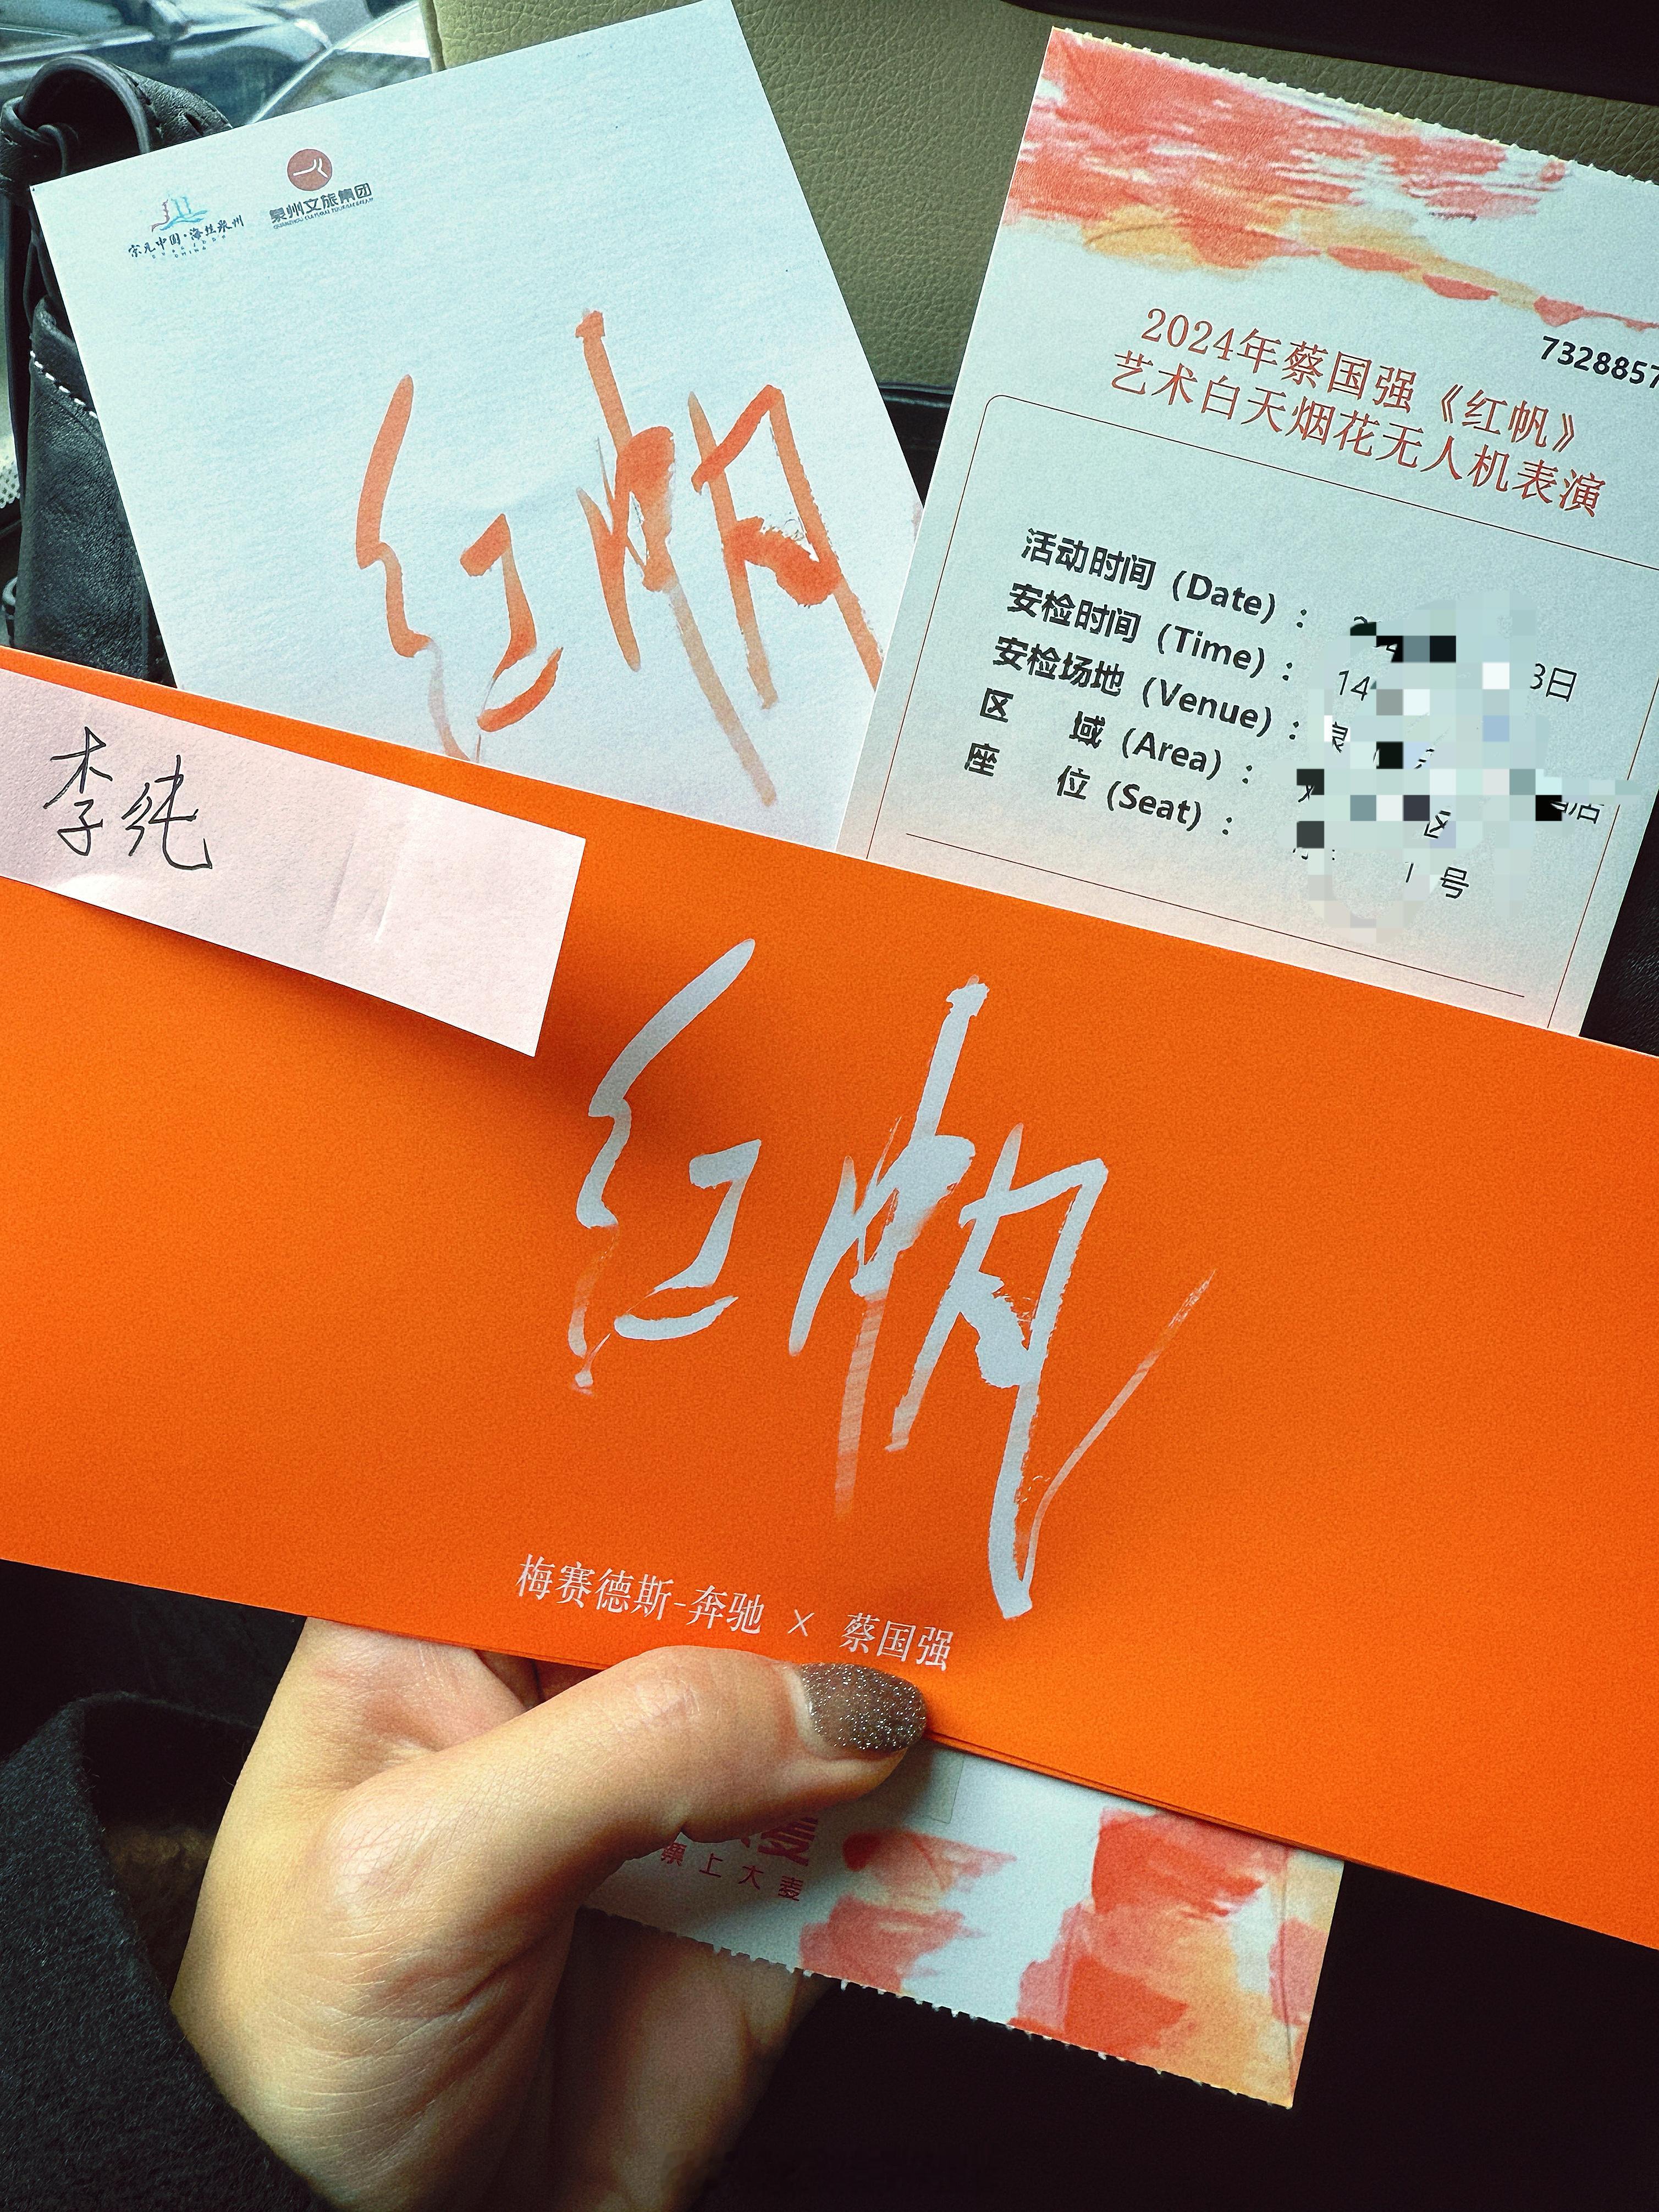 宋元中国·海丝泉州
泉州文旅集团
QUANZHOU CULTURAL TOURISM GROUP
红帆
7328857
2024年蔡国强《红帆》
艺术白天烟花无人机表演
活动时间（Date）：
8日
安检时间（Time）：
14
安检场地（Venue）：
区 域（Area）：
区
座 位（Seat）：
号
李纯
红帆
梅赛德斯-奔驰 × 蔡国强
票上大麦